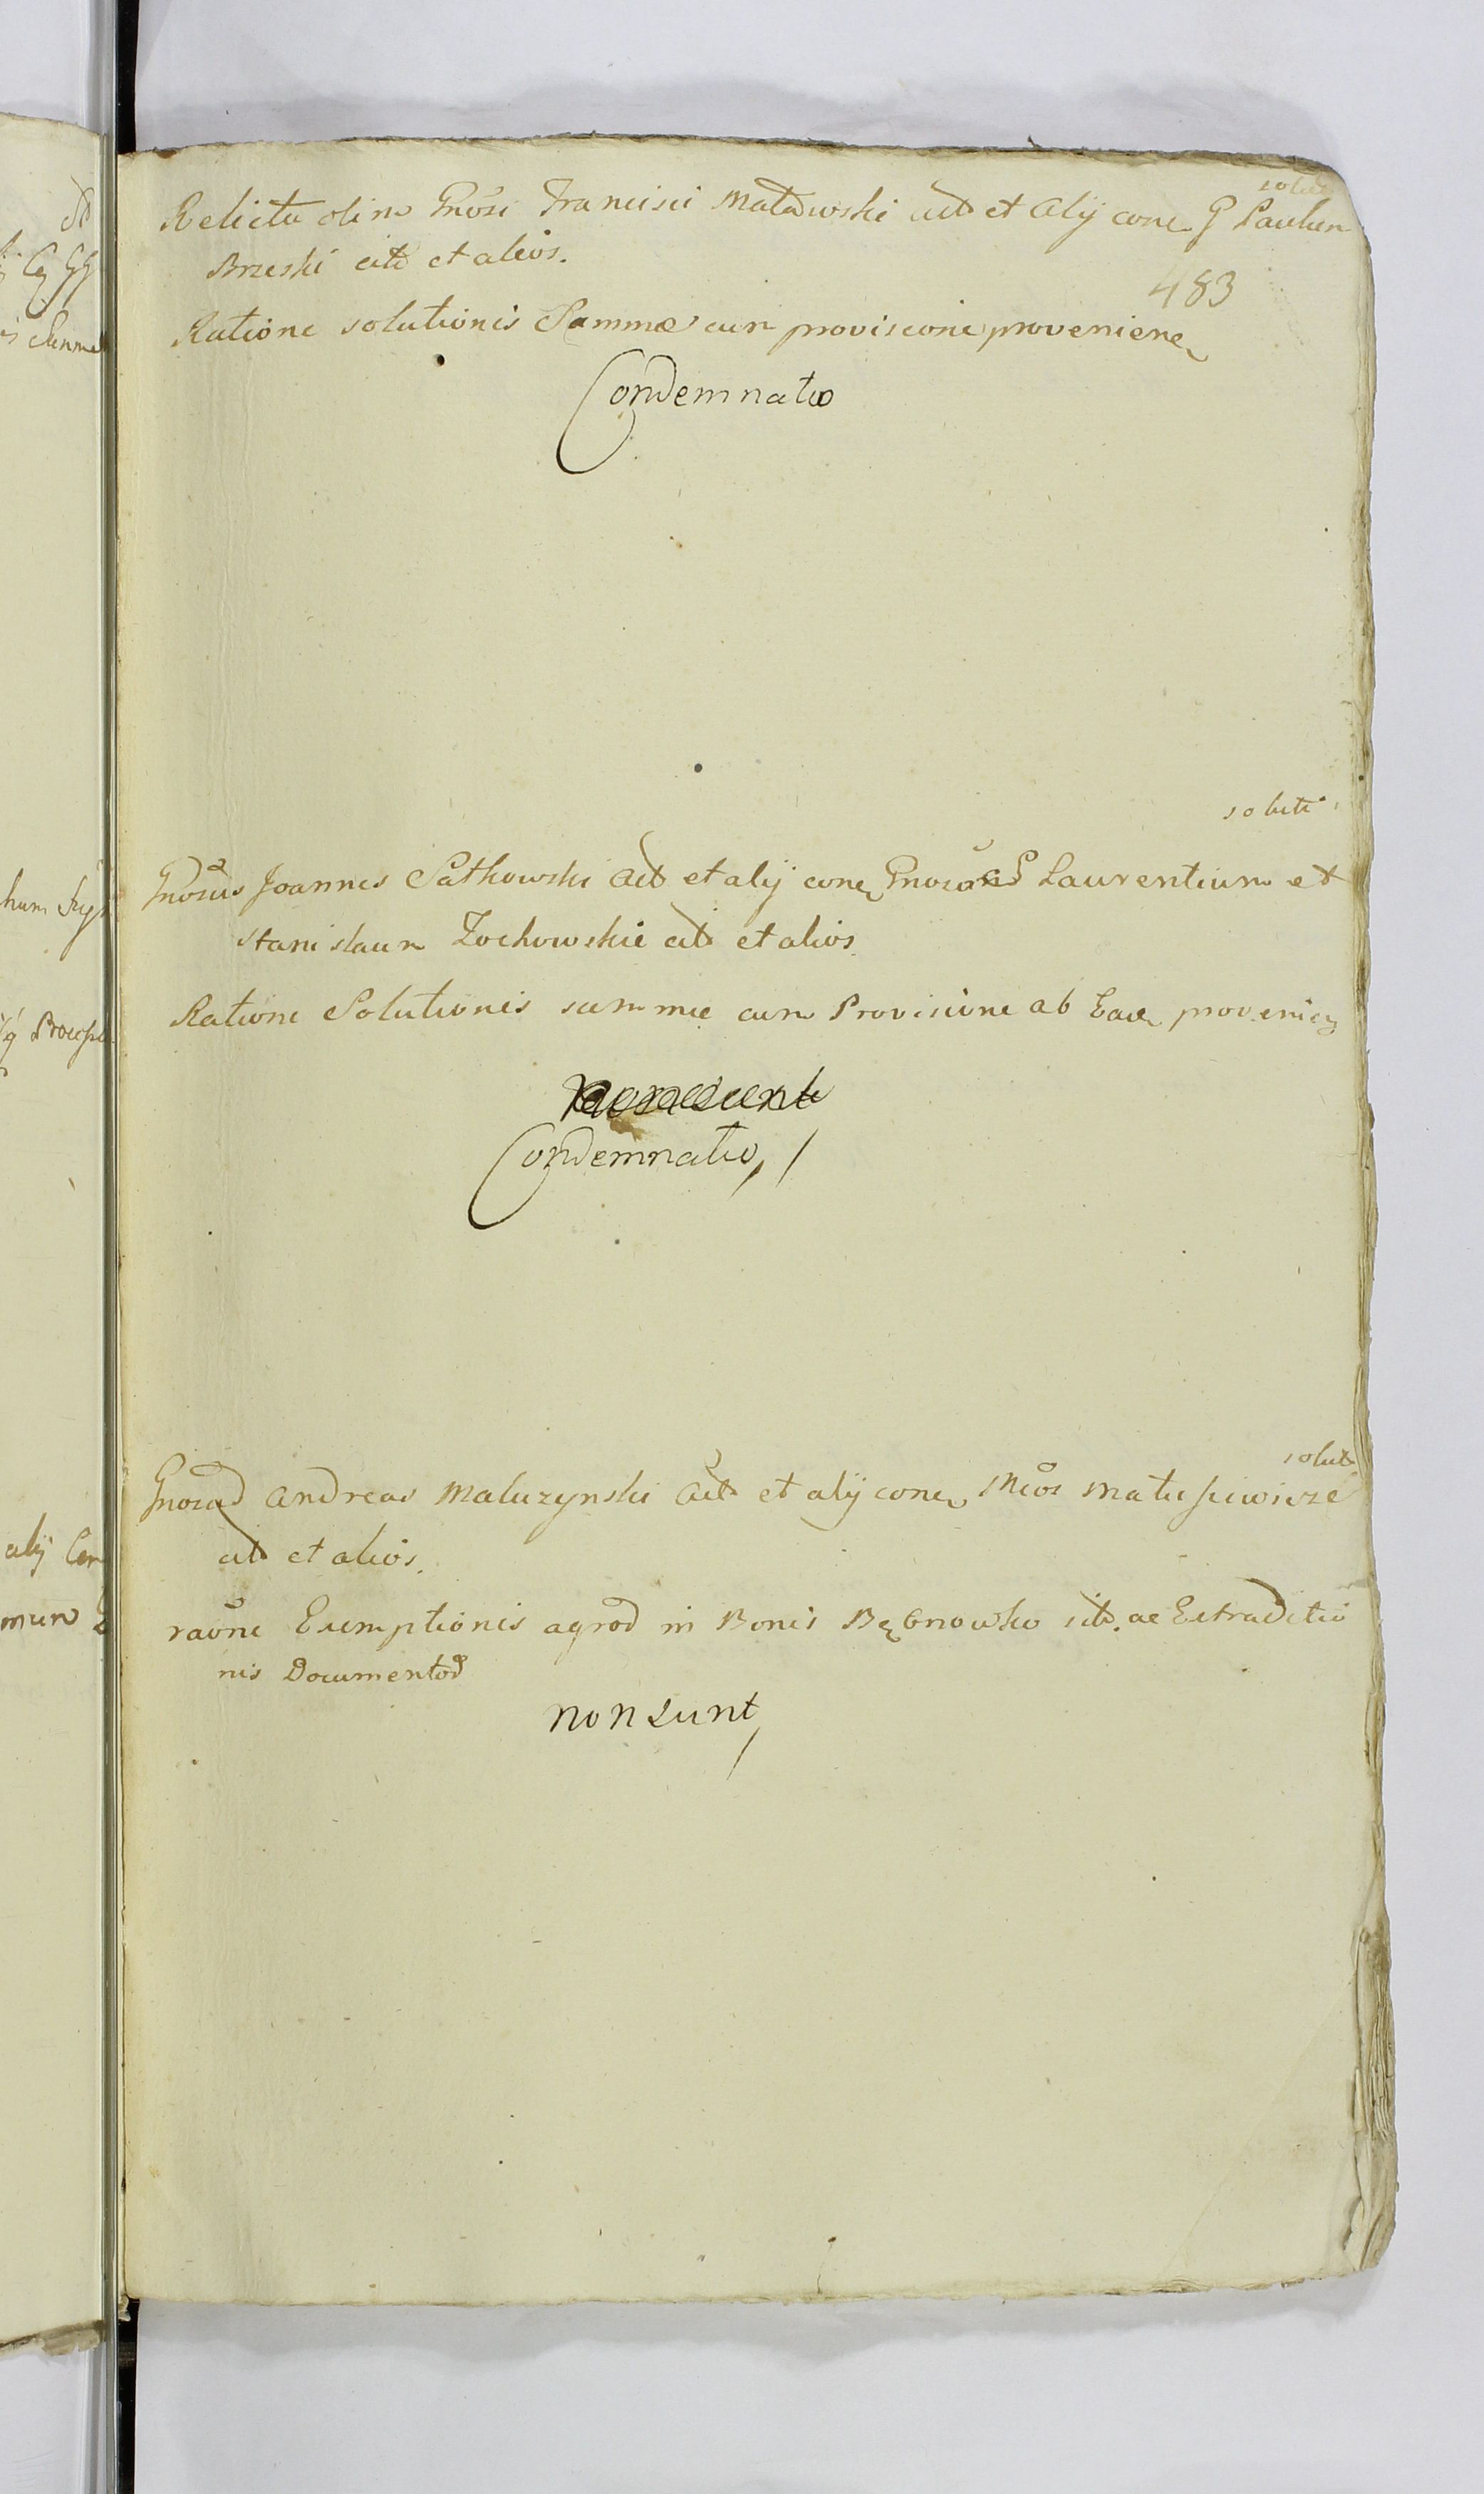 solut
Relicta olim Gnosi Francisci Matowski act et alij conc G Paulum
Brzeski cit et alios.
483
Ratione solutionis Summæ cum provisione provenienc
Condemnatio
soluti
Gnosus Joannes Sathowski act et alij conc Gnosos Laurentium et
Stanislaum Zochowskie cit et alios
Ratione Solutionis summæ cum Provisione ab Eade provenien
non sunt
Condemnatio
solut
Gnosus Andreas Maluzynski act et alij conc Mcos Matuszewicze
cit et alios.
raone Exemptionis agrod in Bonis sit. ac Extraditio
nis Documentod
non sunt
hum
alij
mum